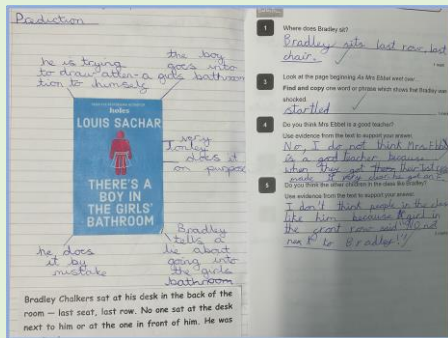 Prediction
he is trying
to draw atten-
tion to himself
the boy
goes into
a girls bathroom
holes
LOUIS SACHAR
THERE'S A
BOY IN
THE GIRLS'
BATHROOM
very
lonley
does it
on purpose
he does
it by
mistake
Bradley
tells a
lie about
going into
the girls
bathroom
Bradley Chalkers sat at his desk in the back of the
room — last seat, last row. No one sat at the desk
next to him or at the one in front of him. He was
1
Where does Bradley sit?
Bradley sits last row, last
chair.
3
Look at the page beginning As Mrs Ebbel went over...
Find and copy one word or phrase which shows that Bradley was
shocked.
startled
4
Do you think Mrs Ebbel is a good teacher?
Use evidence from the text to support your answer.
No, I do not think Mrs Ebbel
is a good teacher because
when they got their
made it very clear he got an
5
Do you think the other children in the class like Bradley?
Use evidence from the text to support your answer.
I don't think people in the class
like him because a girl in
the front row said
next to Bradley!"